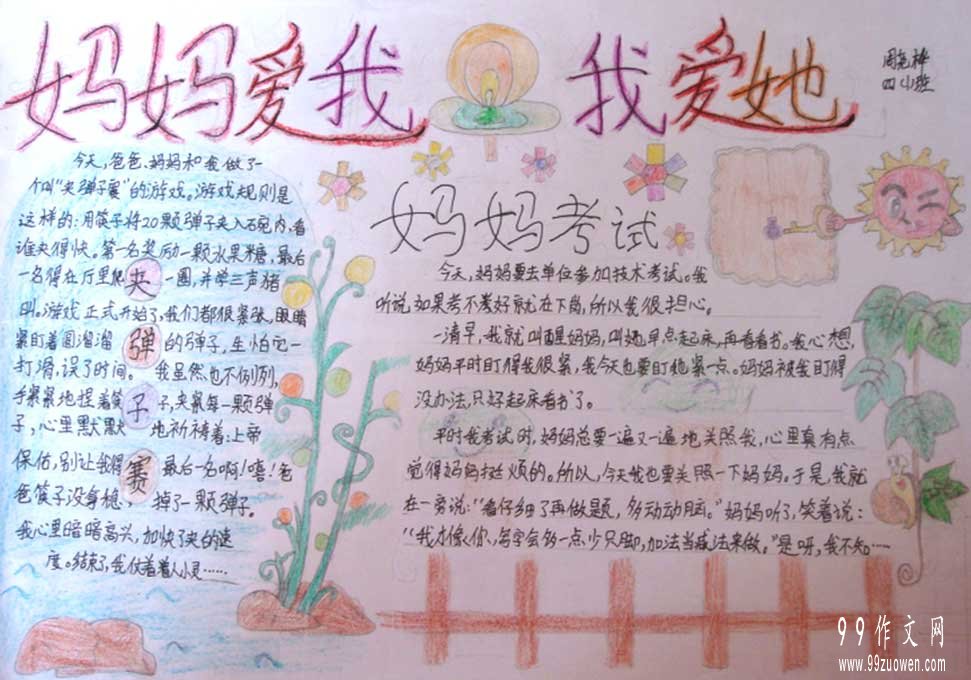 妈妈爱我 我爱她
四小班
今天,爸爸、妈妈和我做了一
个叫"夹弹子赛"的游戏。游戏规则是
这样的:用筷子将20颗弹子夹入碗内,看
谁夹得快。第一名奖励一颗水果糖,最后
一名得在厅里爬一圈,并学三声猪
叫。游戏正式开始了,我们都很紧张,眼睛
紧盯着圆溜溜的弹子,生怕它一
打滑,误了时间。我虽然也不例外,
手紧紧地捏着筷子,夹紧每一颗弹
子,心里默默地祈祷着:上帝
保佑,别让我得最后一名啊!嘻!爸
爸筷子没拿稳,掉了一颗弹子。
我心里暗暗高兴,加快了夹的速
度。结束了,我仗着着人小灵……
夹
弹
子
赛
妈妈考试
今天,妈妈要去单位参加技术考试。我
听说,如果考不考好就在下岗,所以我很担心。
一清早,我就叫醒妈妈,叫她早点起床,再看看书。我心想,
妈妈平时盯得我很紧,我今天也要盯她紧一点。妈妈被我盯得
没办法,只好起床看书了。
平时我考试时,妈妈总要一遍又一遍地关照我,心里真有点
觉得妈妈挺烦的。所以,今天我也要关照一下妈妈,于是,我就
在一旁说:"看仔细了再做题,多动动脑。"妈妈听了,笑着说:
"我才像你,写字会多一点少只脚,加法当减法来做。"是呀,我不知……
99作文网
www.99zuowen.com